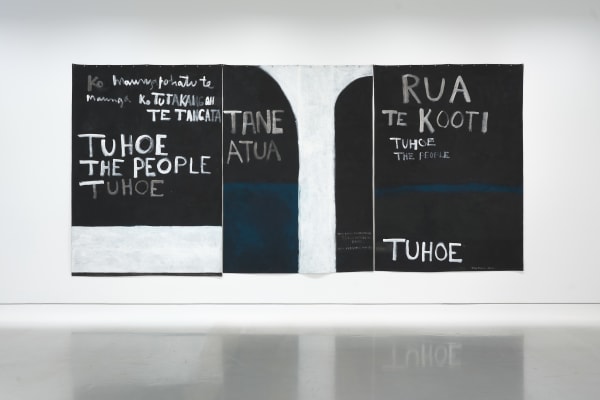 Ko maungapohatu te
maunga Ko TUTAKANGAH
TE TANGATA
TUHOE
THE PEOPLE
TUHOE
TANE
ATUA
RUA
TE KOOTI
TUHOE
THE PEOPLE
TUHOE